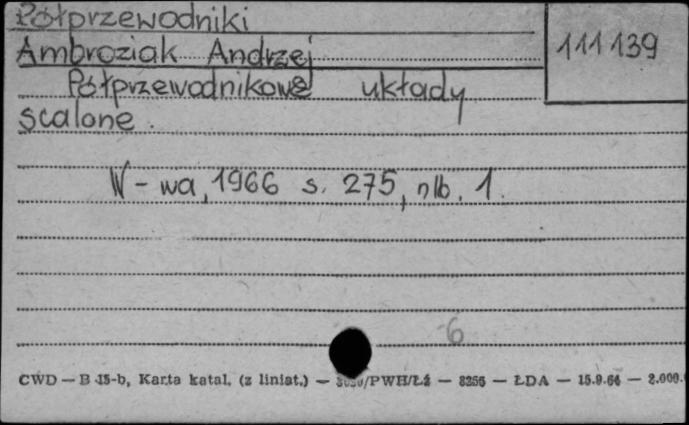 Półprzewodniki
111139
Ambroziak Andrzej
Półprzewodnikowe układy
scalone.
W-wa, 1966 s. 275, nlb. 1.
6
CWD — B 15-b, Karta katal. (z liniat.) — /PWH/Łź — 8256 — ŁDA — 15.9.64 — 2.000.